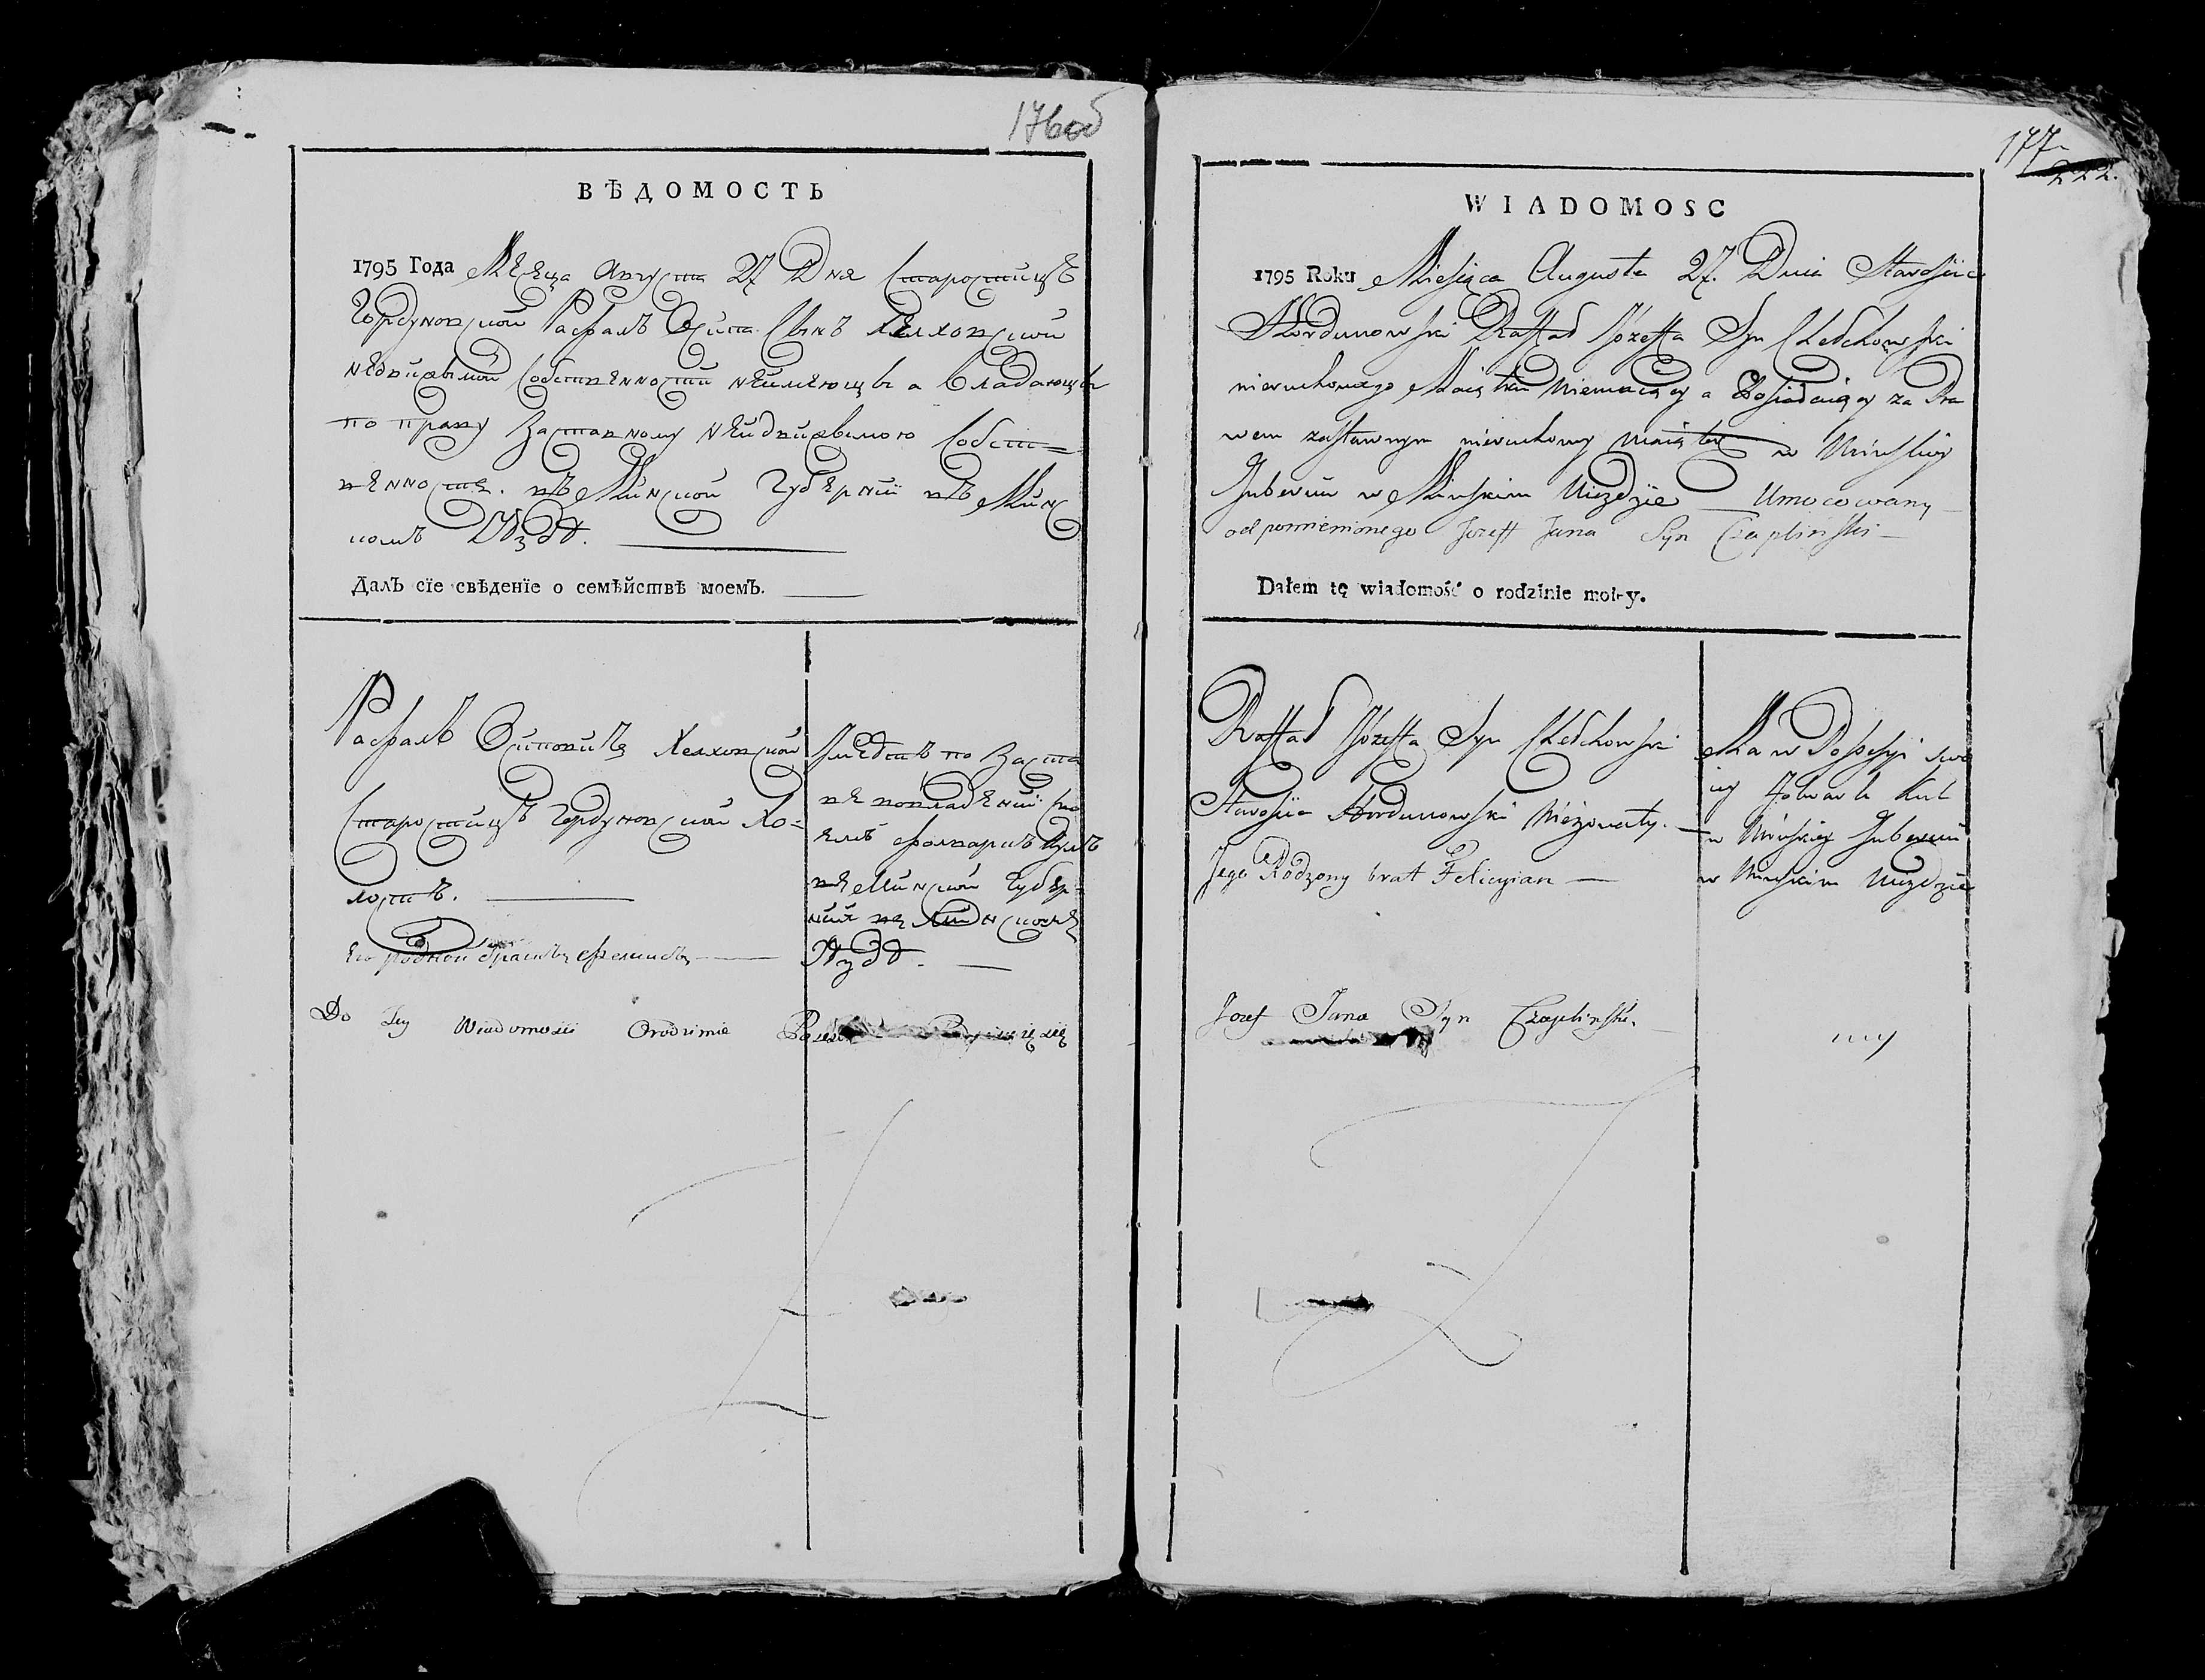 176об
ВѢДОМОСТЬ
1795 Года Мѣсца Августа 27 Дня Старостицъ
Гордуновской Рафалъ Осипа Сынъ Хелховской
недвижимой собственности неимеющъ а владающъ
по праву заставному недвижимою собст=
венносте. въ Минской Губернiи въ Минс
комъ Уѣзде.
ДалЪ сїе свѣденїе о семѣйствѣ моемЪ.
Рафалъ Осиповичъ Хелховской
Старостицъ Гордуновской Хо=
лостъ.
Его родной братъ Феликсъ
Имѣетъ по заста
вѣ во владѣнiи сво
емъ фольваркъ Кулъ
въ Минской Губер=
нiи въ Минскомъ
Уѣзде.
Do Tey Wiadomosći Orodzinie
177
222.
WIADOMOSC
1795 Roku Miesiąca Augusta 27. Dnia Starościc
Hordunowski Raffał Józeffa Syn Chełchowski
nieruchomego Maiątku niemaiący a Posiadaiący za Pra
wem zastawnym nieruchomy maiątek w Minskiey
Gubernii w Minskim Uiezdzie Umocowany
od pomienionego Jozeff Jana Syn Czaplinski
Dałem tę wiadomość o rodzinie moiey.
Raffał Józeffa Syn Chełchowski
Starościc Hordunowski Nieżonaty.
Jego Rodzony brat Felicyian
Ma w Possessyi swo
iey Folwark Kul
w Minskiey Gubernii
w Minskim Uiezdzie
Jozef Jana Syn Czaplinski.